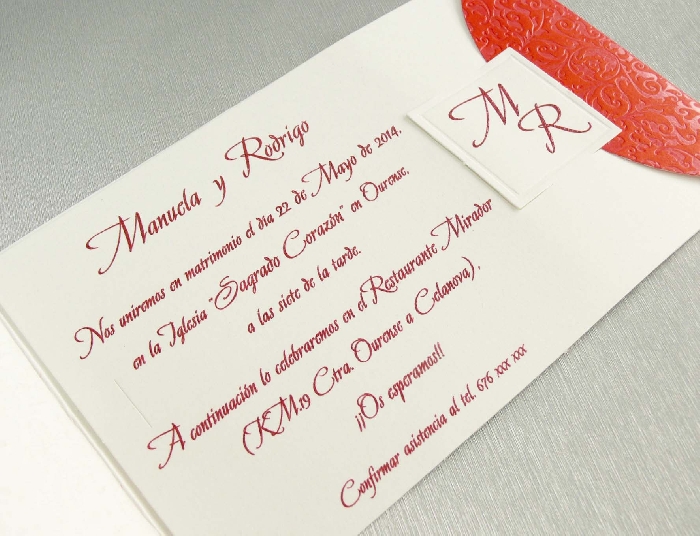 M R
Manuela y Rodrigo
Nos uniremos en matrimonio el día 22 de Mayo de 2014,
en la Iglesia "Sagrado Corazón" en Ourense,
a las siete de la tarde.
A continuación lo celebraremos en el Restaurante Mirador
(KM.19 Ctra. Ourense a Celanova).
¡¡Os esperamos!!
Confirmar asistencia al tel. 676 xxx xxx